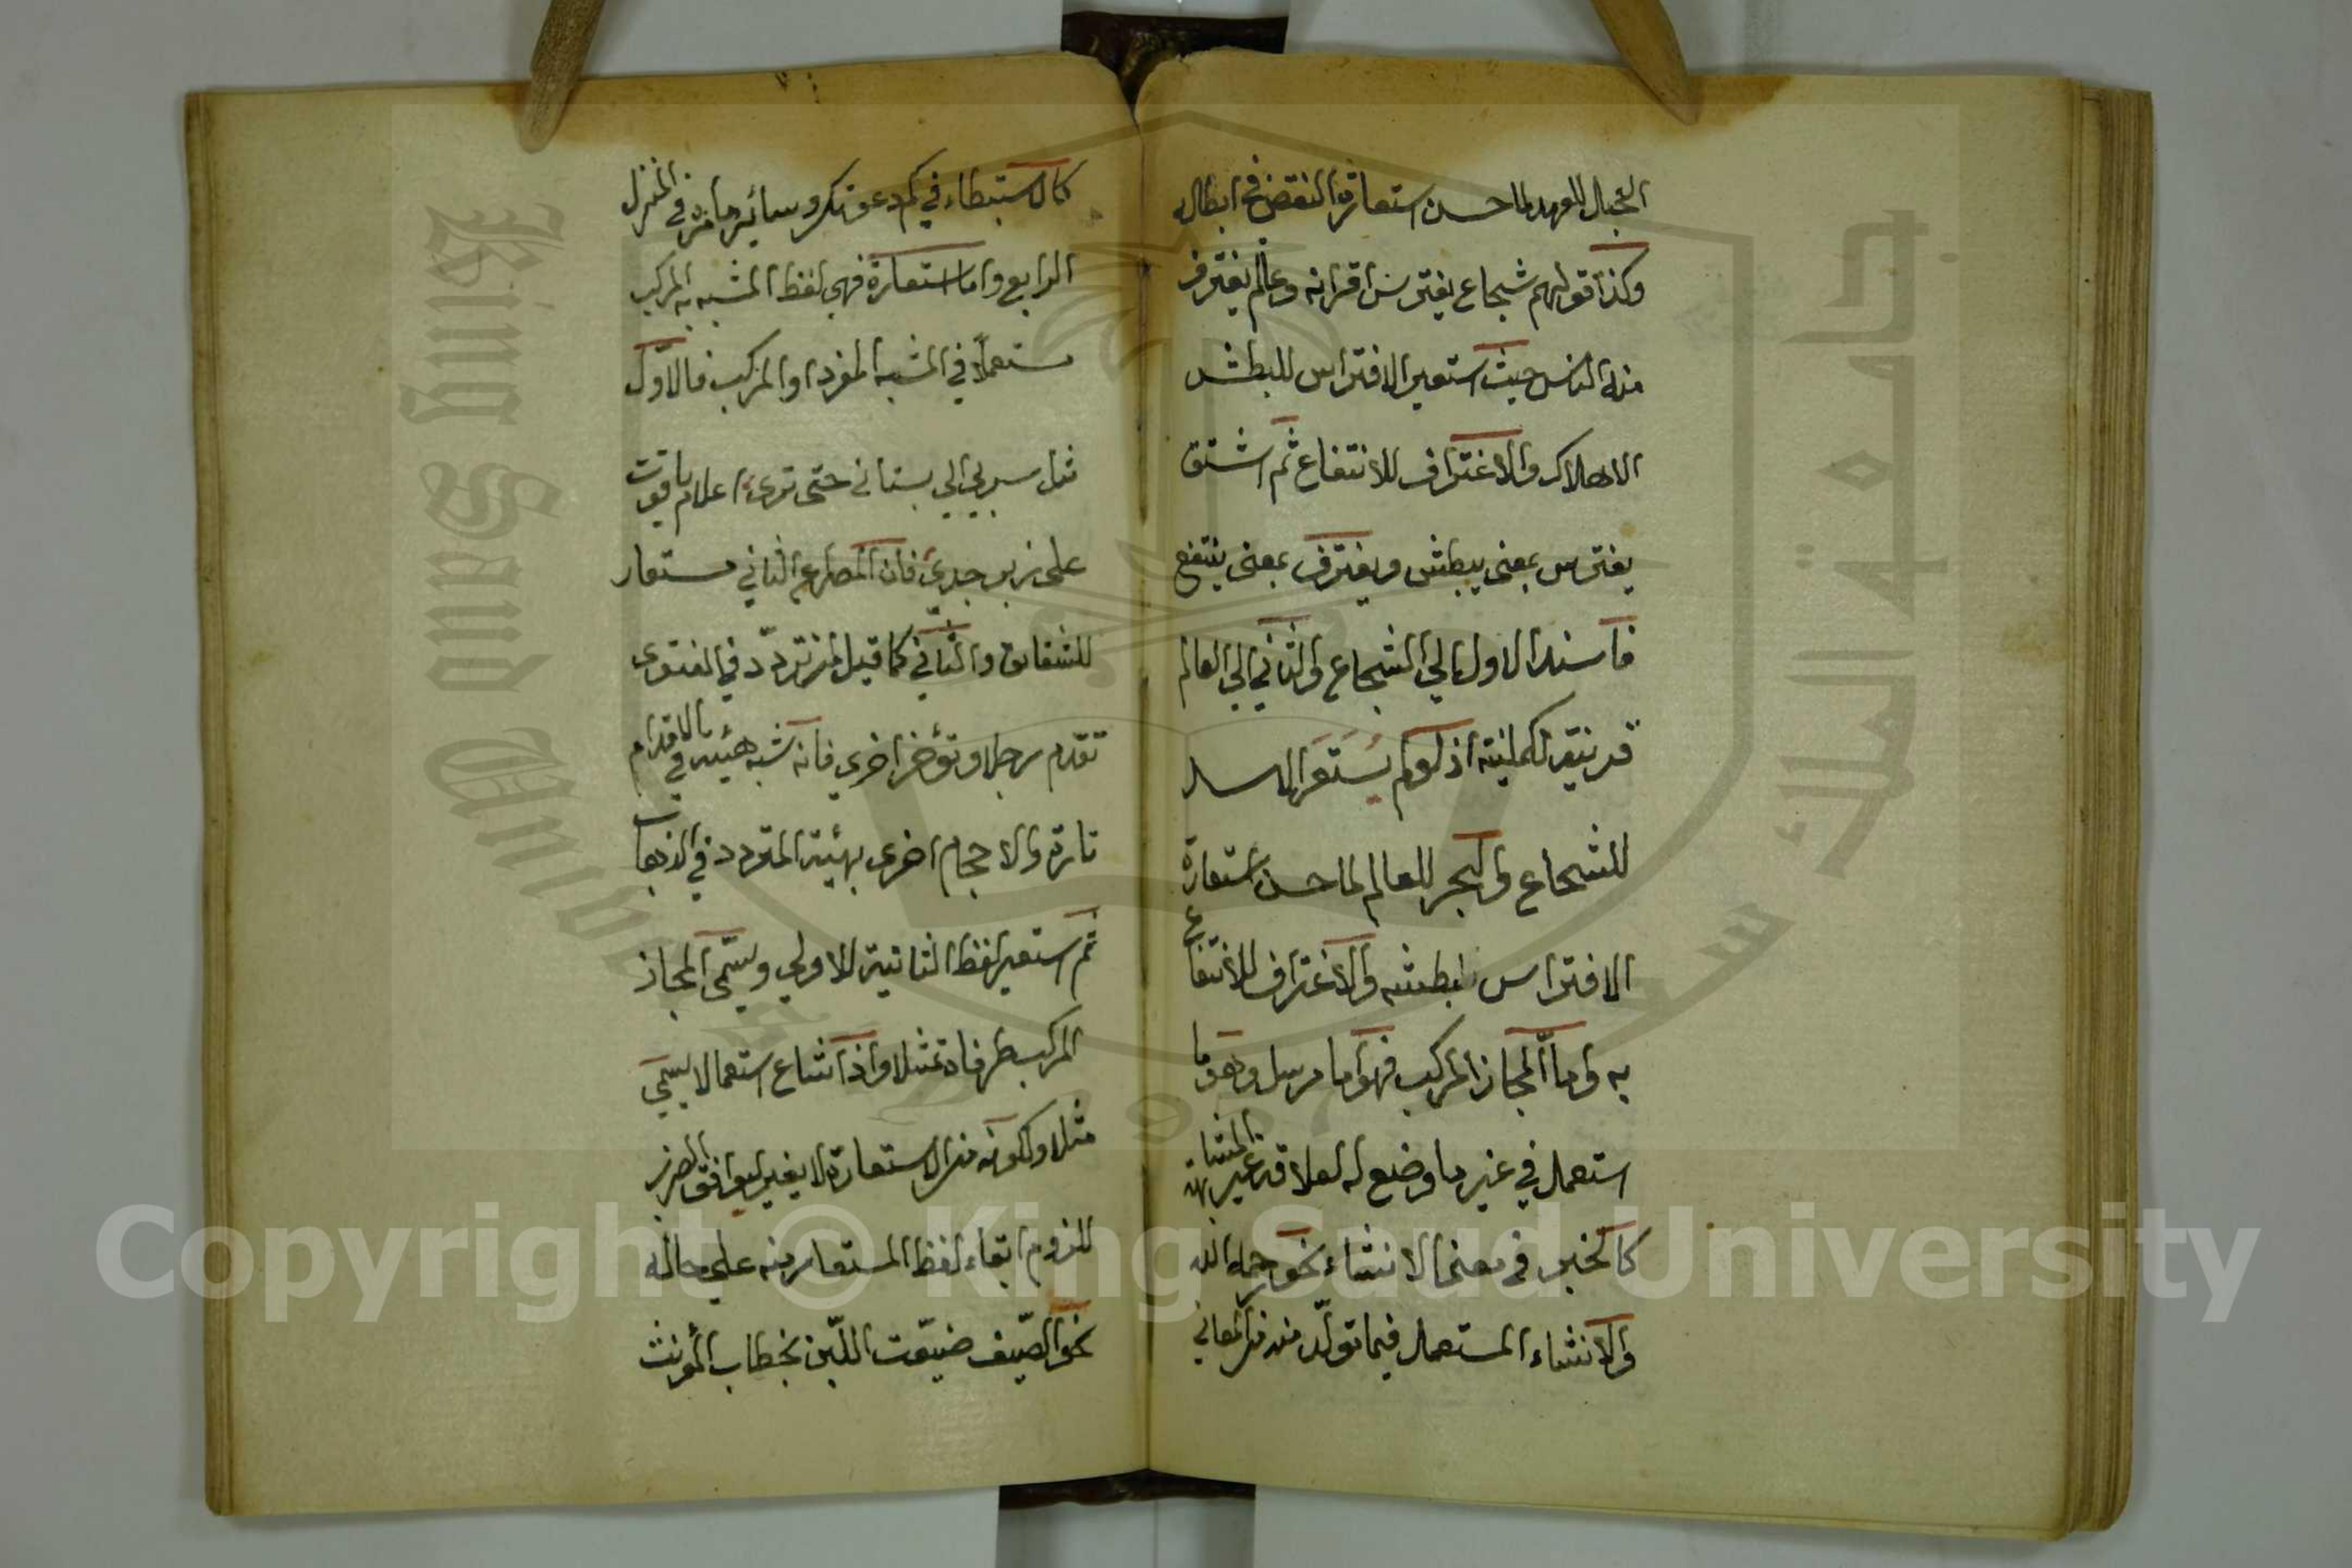 الحبال للعهد لما حسن استعارة النقض في ابطاله
وكذا قولهم شجاع يفترس اقرانه وعالم يغترف
منه الناس حيث استعير الافتراس للبطش
الاهلاك والاغتراف للانتفاع ثم اشتق
يفترس بمعنى يبطش ويغترف بمعنى ينتفع
فاسند الاول الي الشجاع والثاني الي العالم
قرينة لمكنية اذ لو لم يستعر الاسد
للشجاع والبحر للعالم لما حسن استعارة
الافتراس لبطشه والاغتراف للانتفاع
به واما المجاز المركب فهو اما مرسل وهو ما
استعمل في غير ما وضع له لعلاقة غير المشابهة
كالخبر في معنى الانشاء نحو رحمه الله
والانشاء المستعمل فيما تولد منه من المعاني
كالاستبطاء في كم دعوتك وسائر ما مر في المنزل
الرابع واما استعارة فهي لفظ المشبه به المركب
مستعملا في المشبه المفرد او المركب فالاول
مثل سر بي الي بستاني حتى ترى اعلام ياقوت
على زبرجدي فان المصراع الثاني مستعار
للشقائق والثاني كما قيل لمن تردد في الفتوى
تقدم رجلا وتؤخر اخرى فانه شبه هيئته في الاقدام
تارة والاحجام اخرى بهيئة المتردد في الذهاب
ثم استعير لفظ الثانية للاولي ويسمى المجاز
المركب طرفاه تمثيلا واذا شاع استعمالا يسمى
مثلا ولكونه من الاستعارة لا يغير ليوافق المضرب
للزوم ابقاء لفظ المستعار منه علي حاله
نحو الصيف ضيعت اللبن بخطاب المؤنث
Copyright © King Saud University
King Saud University
جامعة الملك سعود
1957